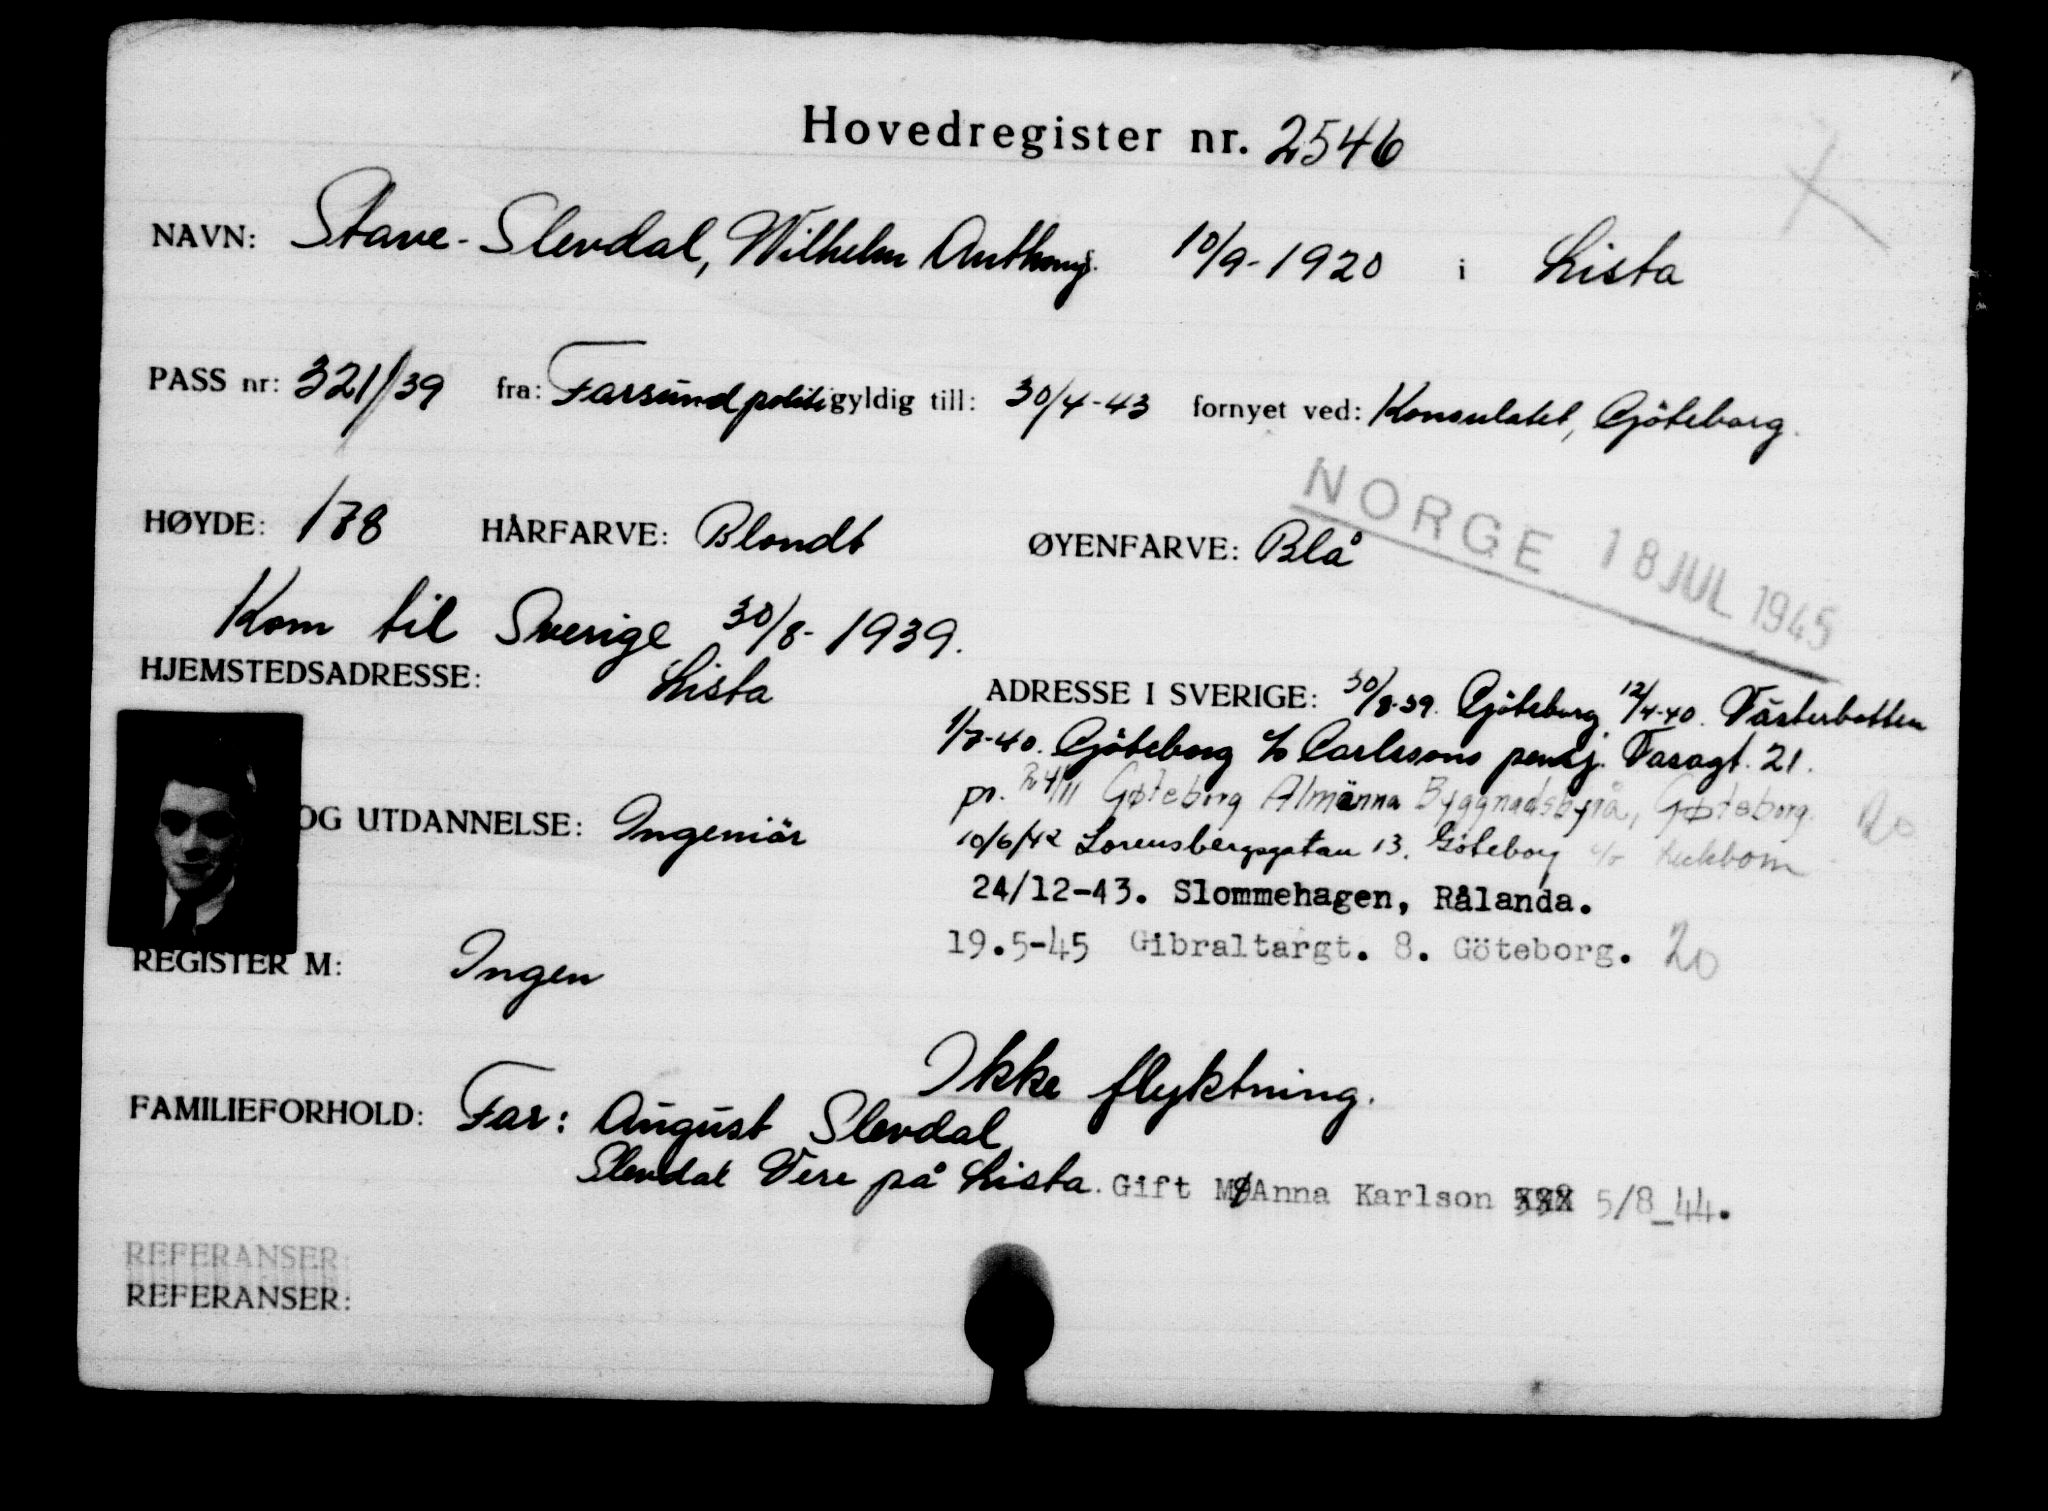 Hovedregister nr. 2546
NAVN: Stave-Slevdal, Wilhelm Anthony. 10/9-1920 i Lista
PASS nr: 321/39 fra: Farsund politi gyldig till: 30/4-43 fornyet ved: Konsulatet, Göteborg.
HØYDE: 178 HÅRFARVE: Blondt ØYENFARVE: Blå
NORGE 18 JUL 1945
Kom til Sverige 30/8-1939.
HJEMSTEDSADRESSE: Lista
ADRESSE I SVERIGE: 30/8-39. Göteborg 12/4-40. Västerbotten
1/7-40. Göteborg c/o Carlssons pensj. Vasagt. 21.
pr. 4/11 Gøteborg Almänna Byggnadsbyrå, Gøteborg.
OG UTDANNELSE: Ingeniör
10/6/42 Lorensbergsgatan 13. Göteborg c/o
24/12-43. Slommehagen, Rålanda.
19.5-45 Gibraltargt. 8. Göteborg. 20
REGISTER M: Ingen
Ikke flyktning.
FAMILIEFORHOLD: Far: August Slevdal
Slevdal Vere på Lista. Gift M/Anna Karlson xxx 5/8_44.
REFERANSER:
REFERANSER: